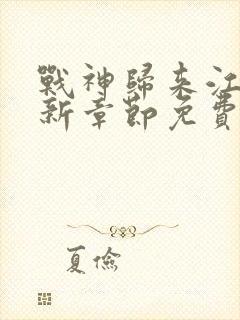 戰神歸来江
新章節免費
夏儉